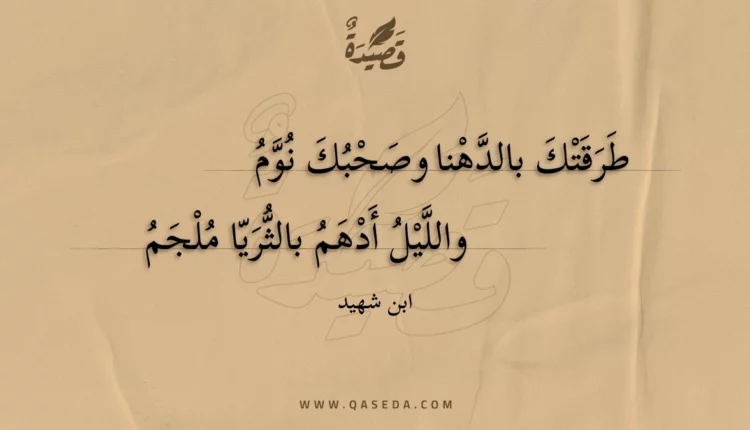 قَصِيدَةٌ
طَرَقَتْكَ بالدَّهْنا وصَحْبُكَ نُوَّمُ
واللَّيْلُ أَدْهَمُ بالثُّرَيّا مُلْجَمُ
ابن شهيد
WWW.QASEDA.COM